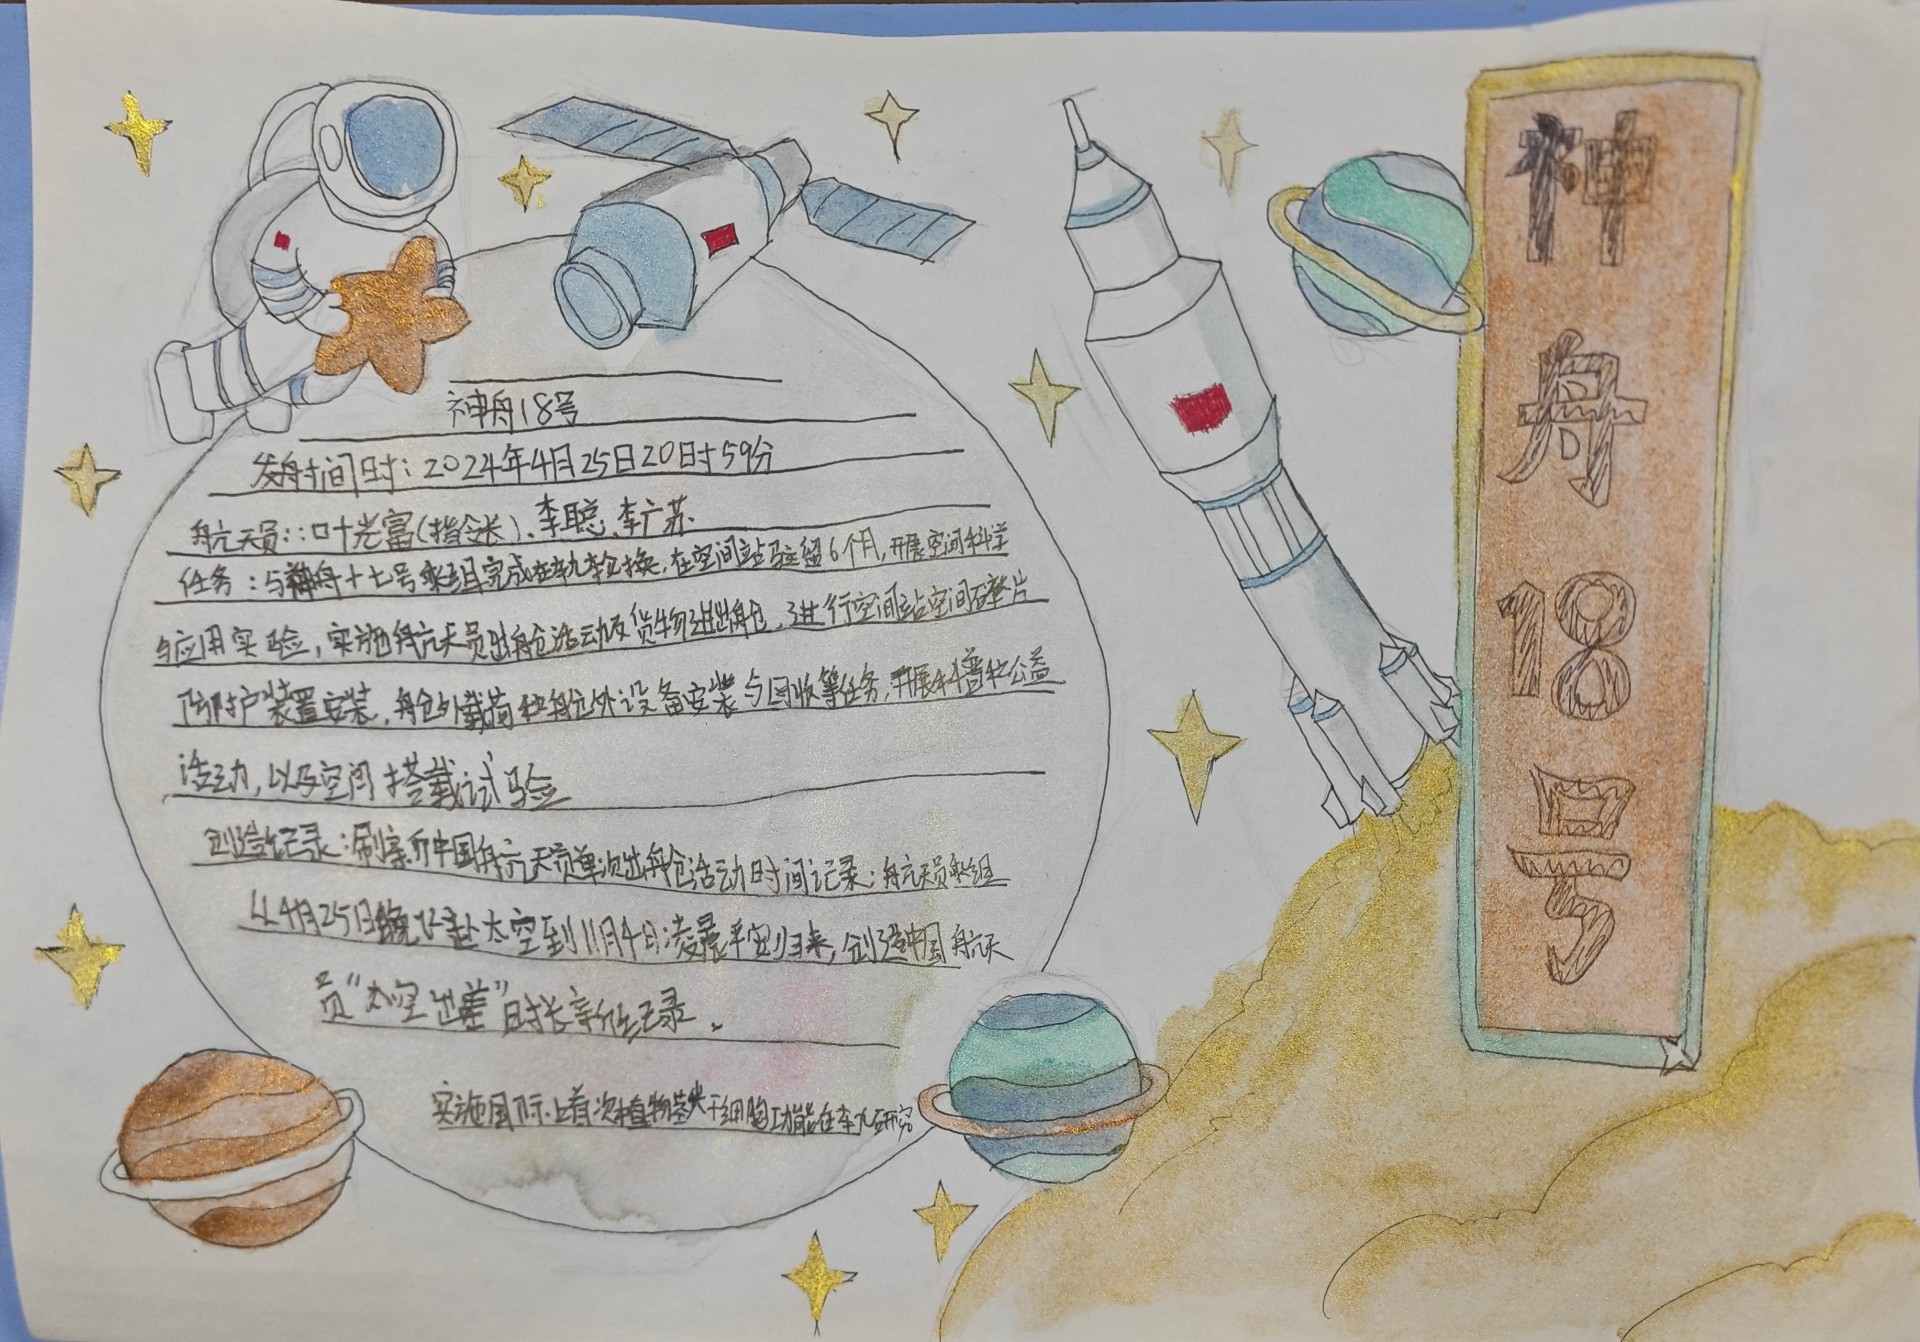 神舟18号
神舟18号
发射时间时：2024年4月25日20时59分
航天员：：叶光富(指令长)、李聪、李广苏
任务：与神舟十七号乘组完成在轨轮换，在空间站驻留6个月，开展空间科学
与应用实验，实施航天员出舱活动及货物进出舱，进行空间站空间碎片
防护装置安装，舱外载荷和舱外设备安装与回收等任务，开展科普和公益
活动，以及空间搭载试验
创造纪录：刷新了中国航天员单次出舱活动时间记录；航天员乘组
从4月25日晚飞赴太空到11月4日凌晨平安归来，创造中国航天
员“太空出差”时长新纪录。
实施国际上首次植物茎尖干细胞功能在轨研究